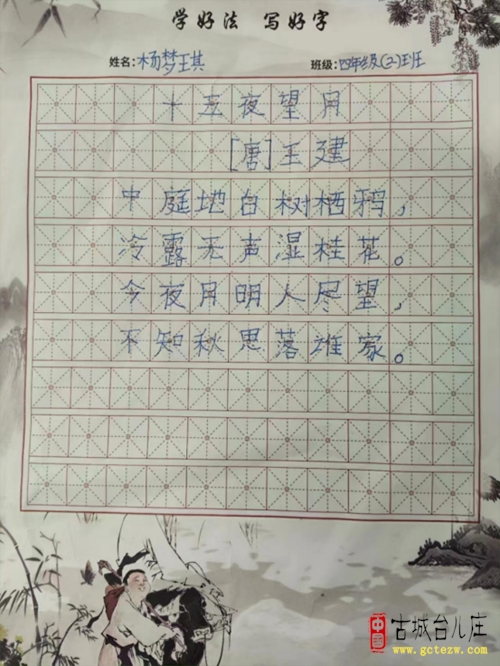 学好法 写好字
姓名:杨梦王其 班级:四年级(2)班
十五夜望月
[唐]王建
中庭地白树栖鸦,
冷露无声湿桂花。
今夜月明人尽望,
不知秋思落谁家。
中国 古城台儿庄
www.gctezw.com